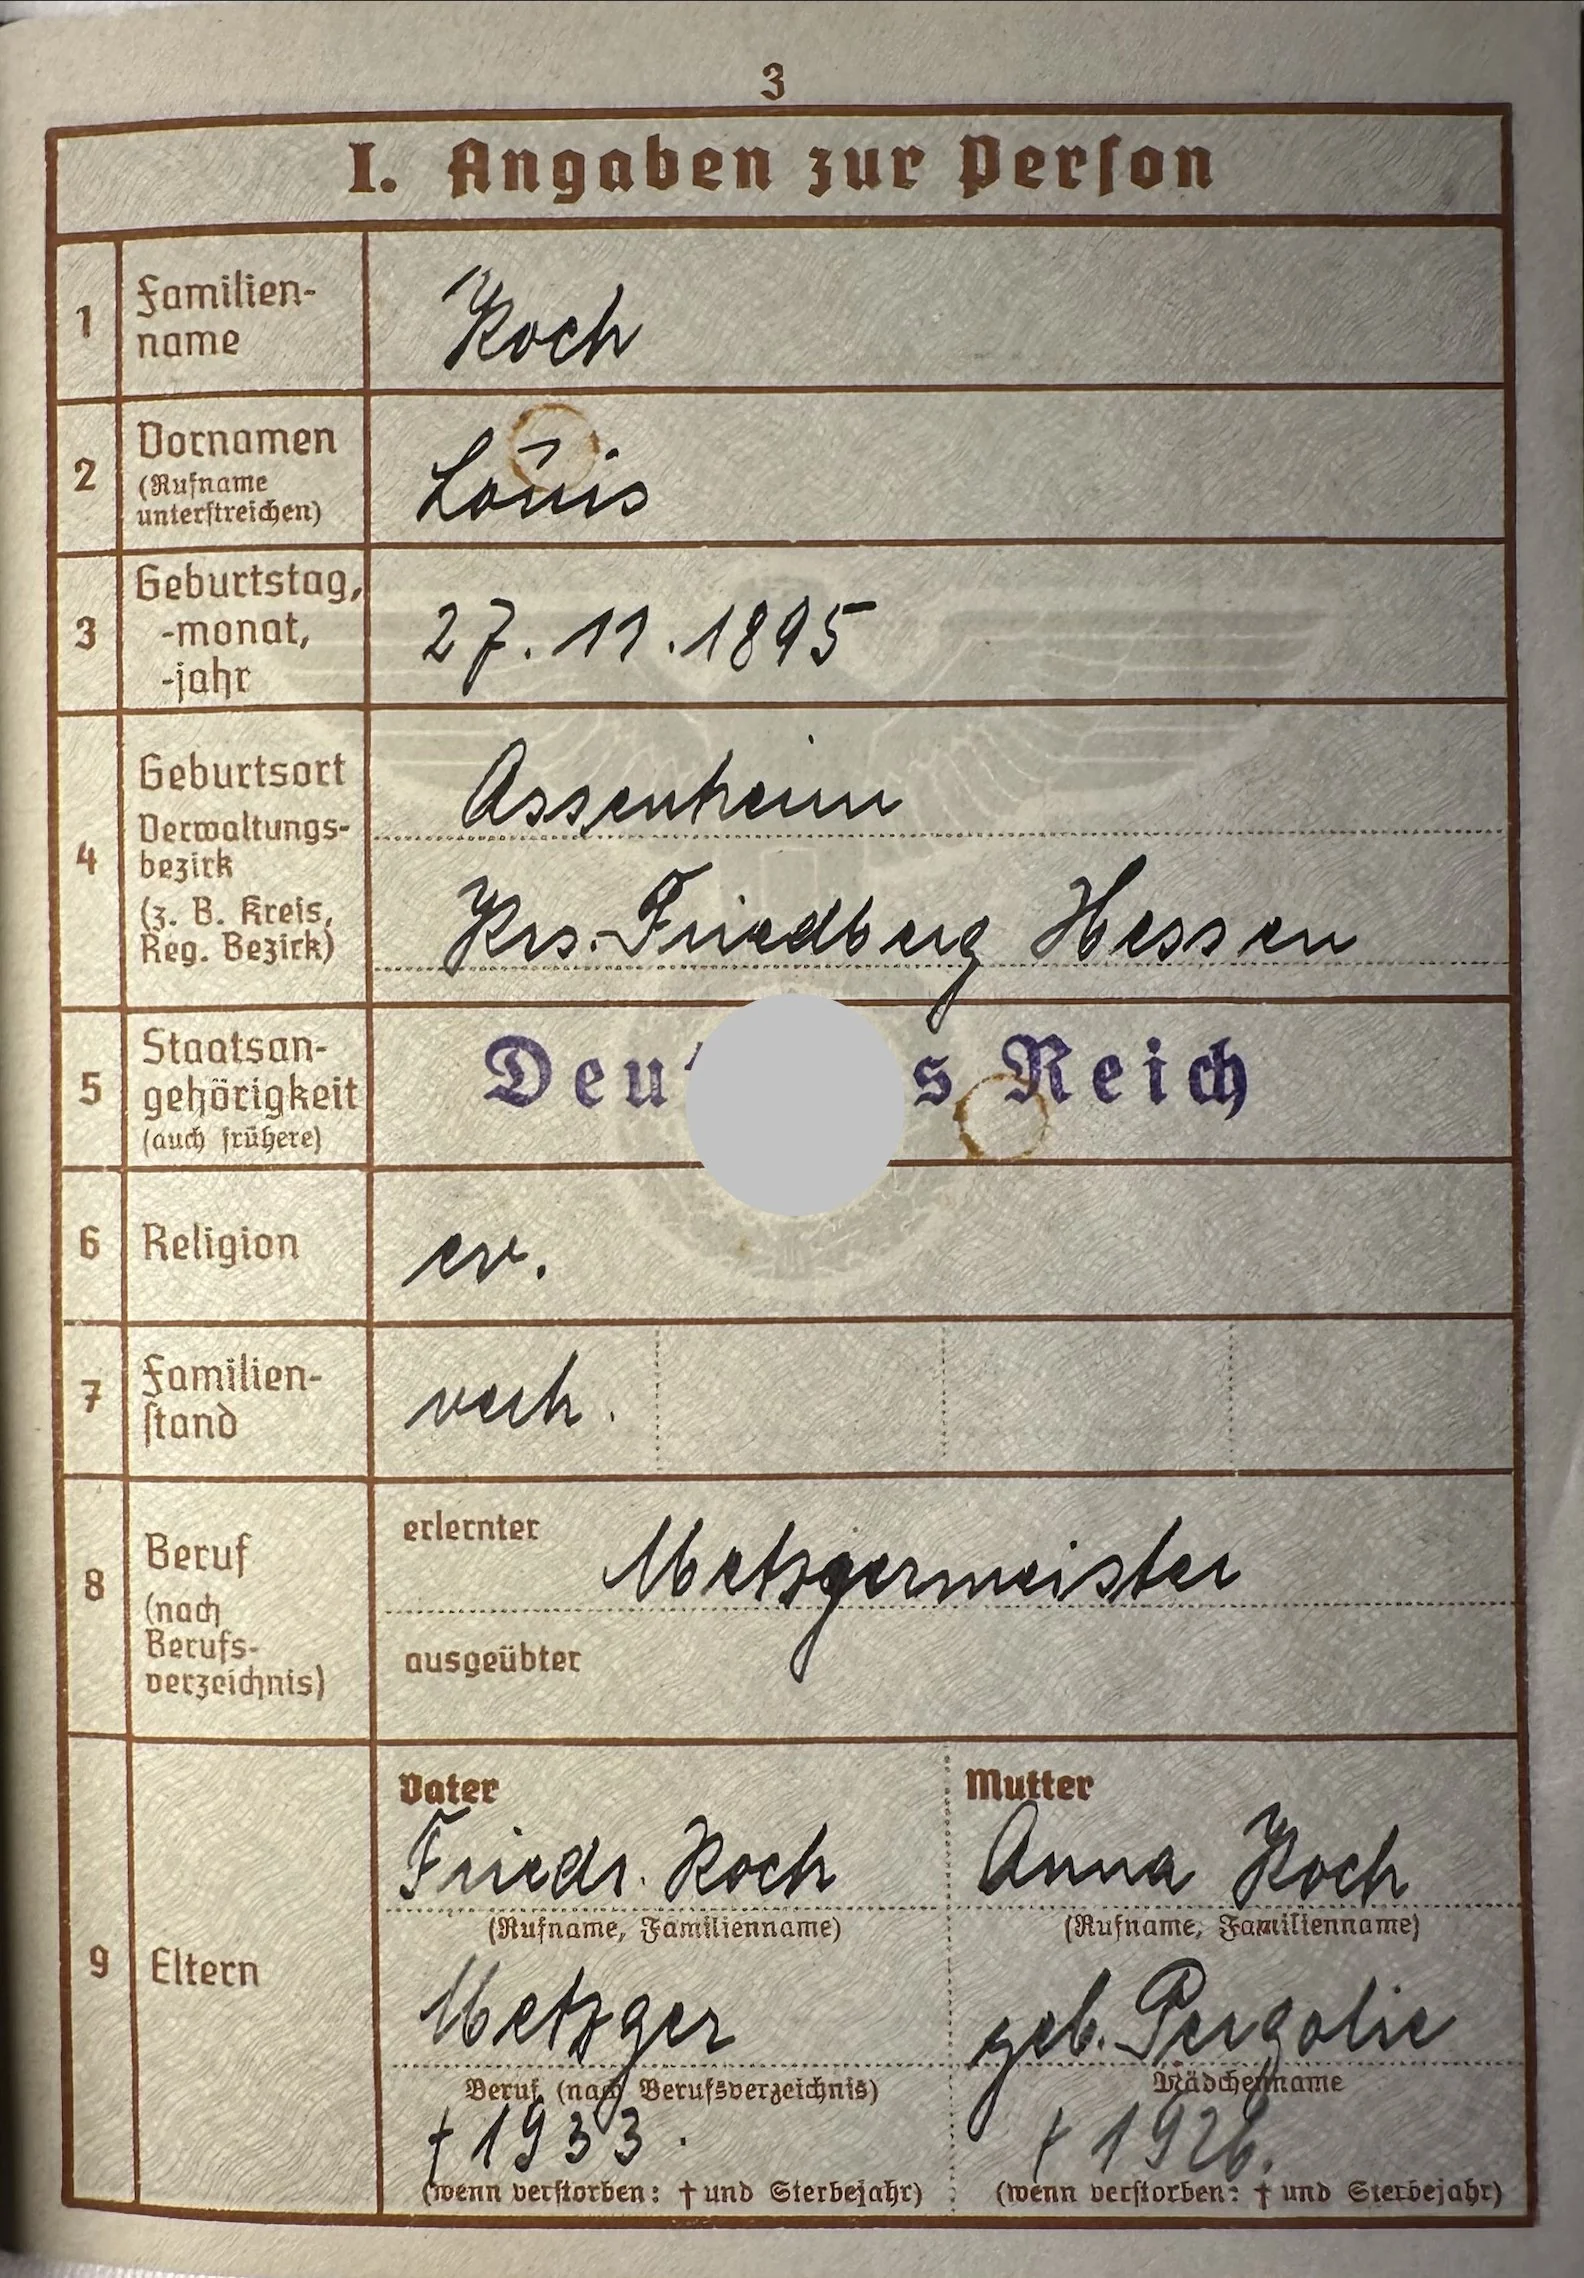 3
I. Angaben zur Person
1
Familien-
name
Koch
2
Vornamen
(Rufname
unterstreichen)
Louis
3
Geburtstag,
-monat,
-jahr
27.11.1895
4
Geburtsort
Verwaltungs-
bezirk
(z. B. Kreis,
Reg. Bezirk)
Assenheim
Krs. Friedberg Hessen
5
Staatsan-
gehörigkeit
(auch frühere)
Deu s Reich
6
Religion
ev.
7
Familien-
stand
verh.
8
Beruf
(nach
Berufs-
verzeichnis)
erlernter
Metzgermeister
ausgeübter
9
Eltern
Vater
Friedr. Koch
(Rufname, Familienname)
Metzger
Beruf (nach Berufsverzeichnis)
† 1933.
(wenn verstorben: † und Sterbejahr)
Mutter
Anna Koch
(Rufname, Familienname)
geb. Pergolie
Mädchenname
† 1926.
(wenn verstorben: † und Sterbejahr)